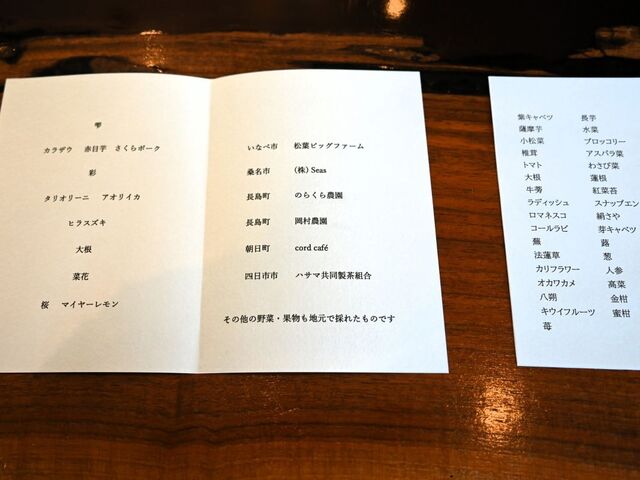 雫
カラデウ 赤目芋 さくらポーク
彩
タリオリーニ アオリイカ
ヒラスズキ
大根
菜花
桜 マイヤーレモン
いなべ市 松葉ピッグファーム
桑名市 (株) Seas
長島町 のらくら農園
長島町 岡村農園
朝日町 cord café
四日市市 ハサマ共同製茶組合
その他の野菜・果物も地元で採れたものです
紫キャベツ 長芋
薩摩芋 水菜
小松菜 ブロッコリー
椎茸 アスパラ菜
トマト わさび菜
大根 蓮根
牛蒡 紅菜苔
ラディッシュ スナップエン
ロマネスコ 絹さや
コールラビ 芽キャベツ
蕪 蕗
法蓮草 葱
カリフラワー 人参
オカワカメ 高菜
八朔 金柑
キウイフルーツ 蜜柑
苺